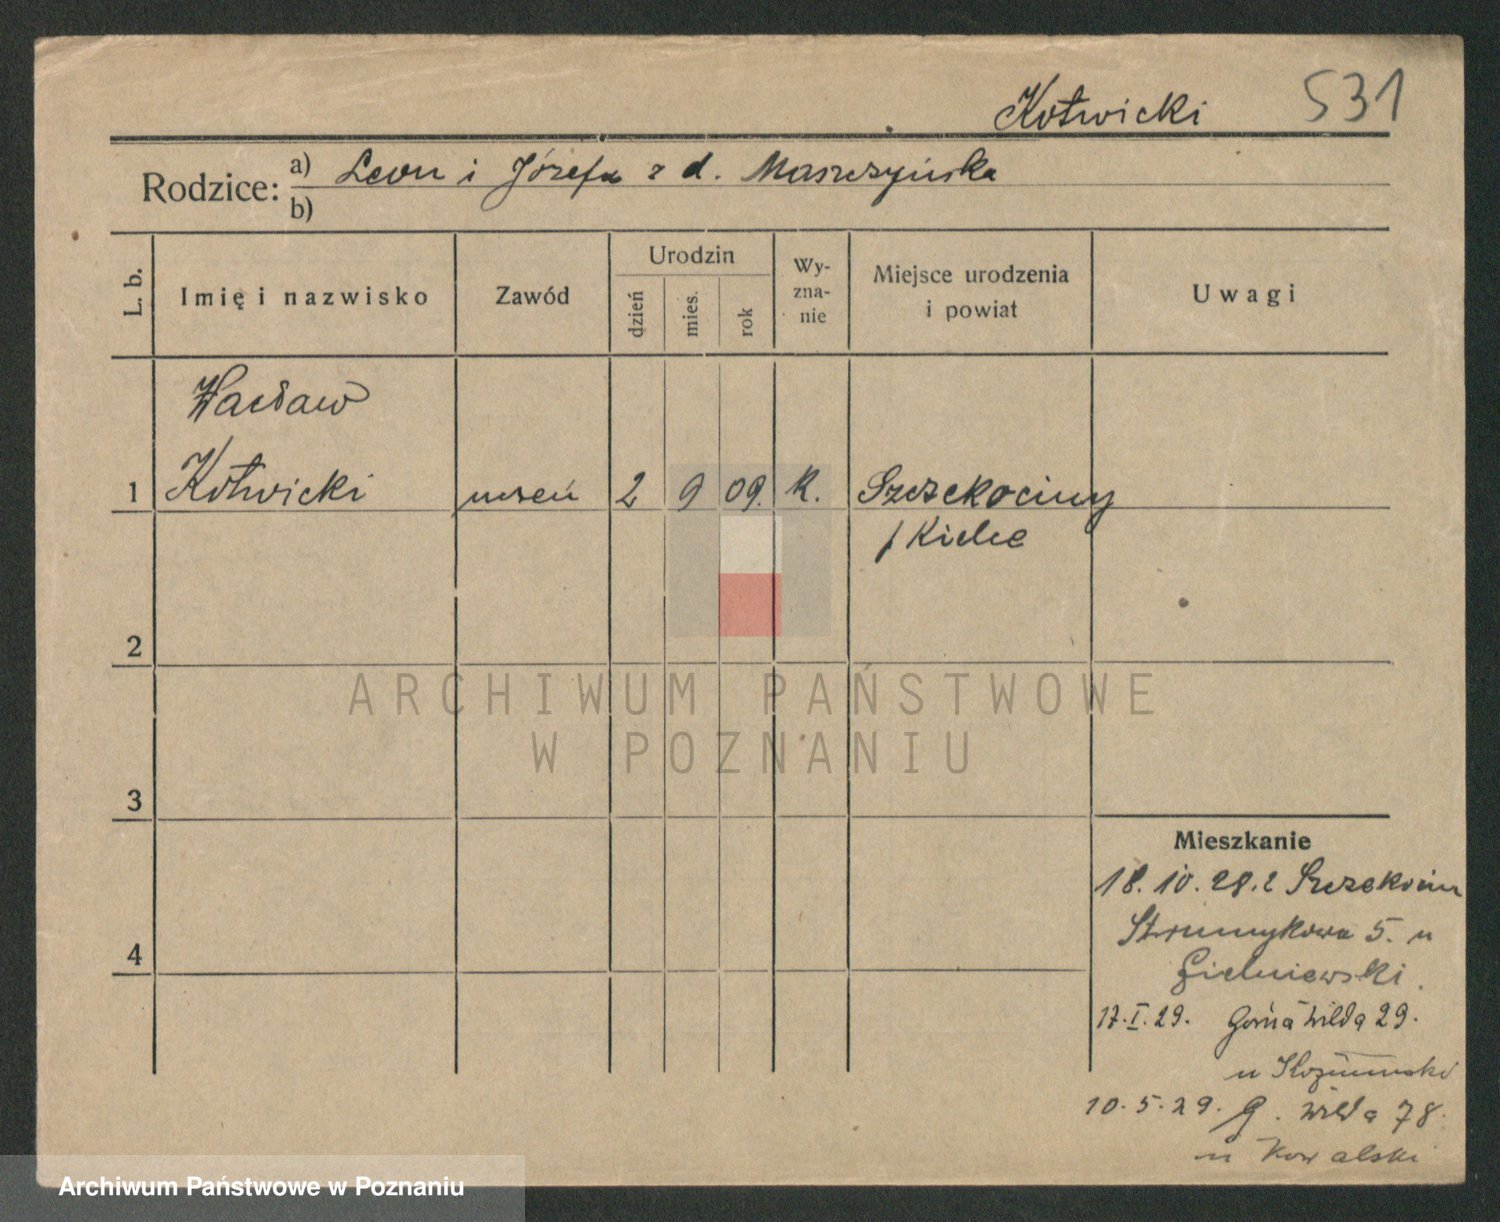 Kotwicki 531
Rodzice: a) Leon i Józefa z d. Maszczyńska
b)
L. b. Imię i nazwisko Zawód Urodzin dzień mies. rok Wy-zna-nie Miejsce urodzenia i powiat Uwagi
Wacław
1 Kotwicki uczeń 2 9 09. k. Szczekociny
/ Kielce
2
ARCHIWUM PAŃSTWOWE
W POZNANIU
3
Mieszkanie
18. 10. 28. z Szczekocin
Strumykowa 5. u
4
Zielniewski.
17. I. 29. Górna Wilda 29.
u
10. 5. 29. G. Wilda 78.
u Kowalski
Archiwum Państwowe w Poznaniu